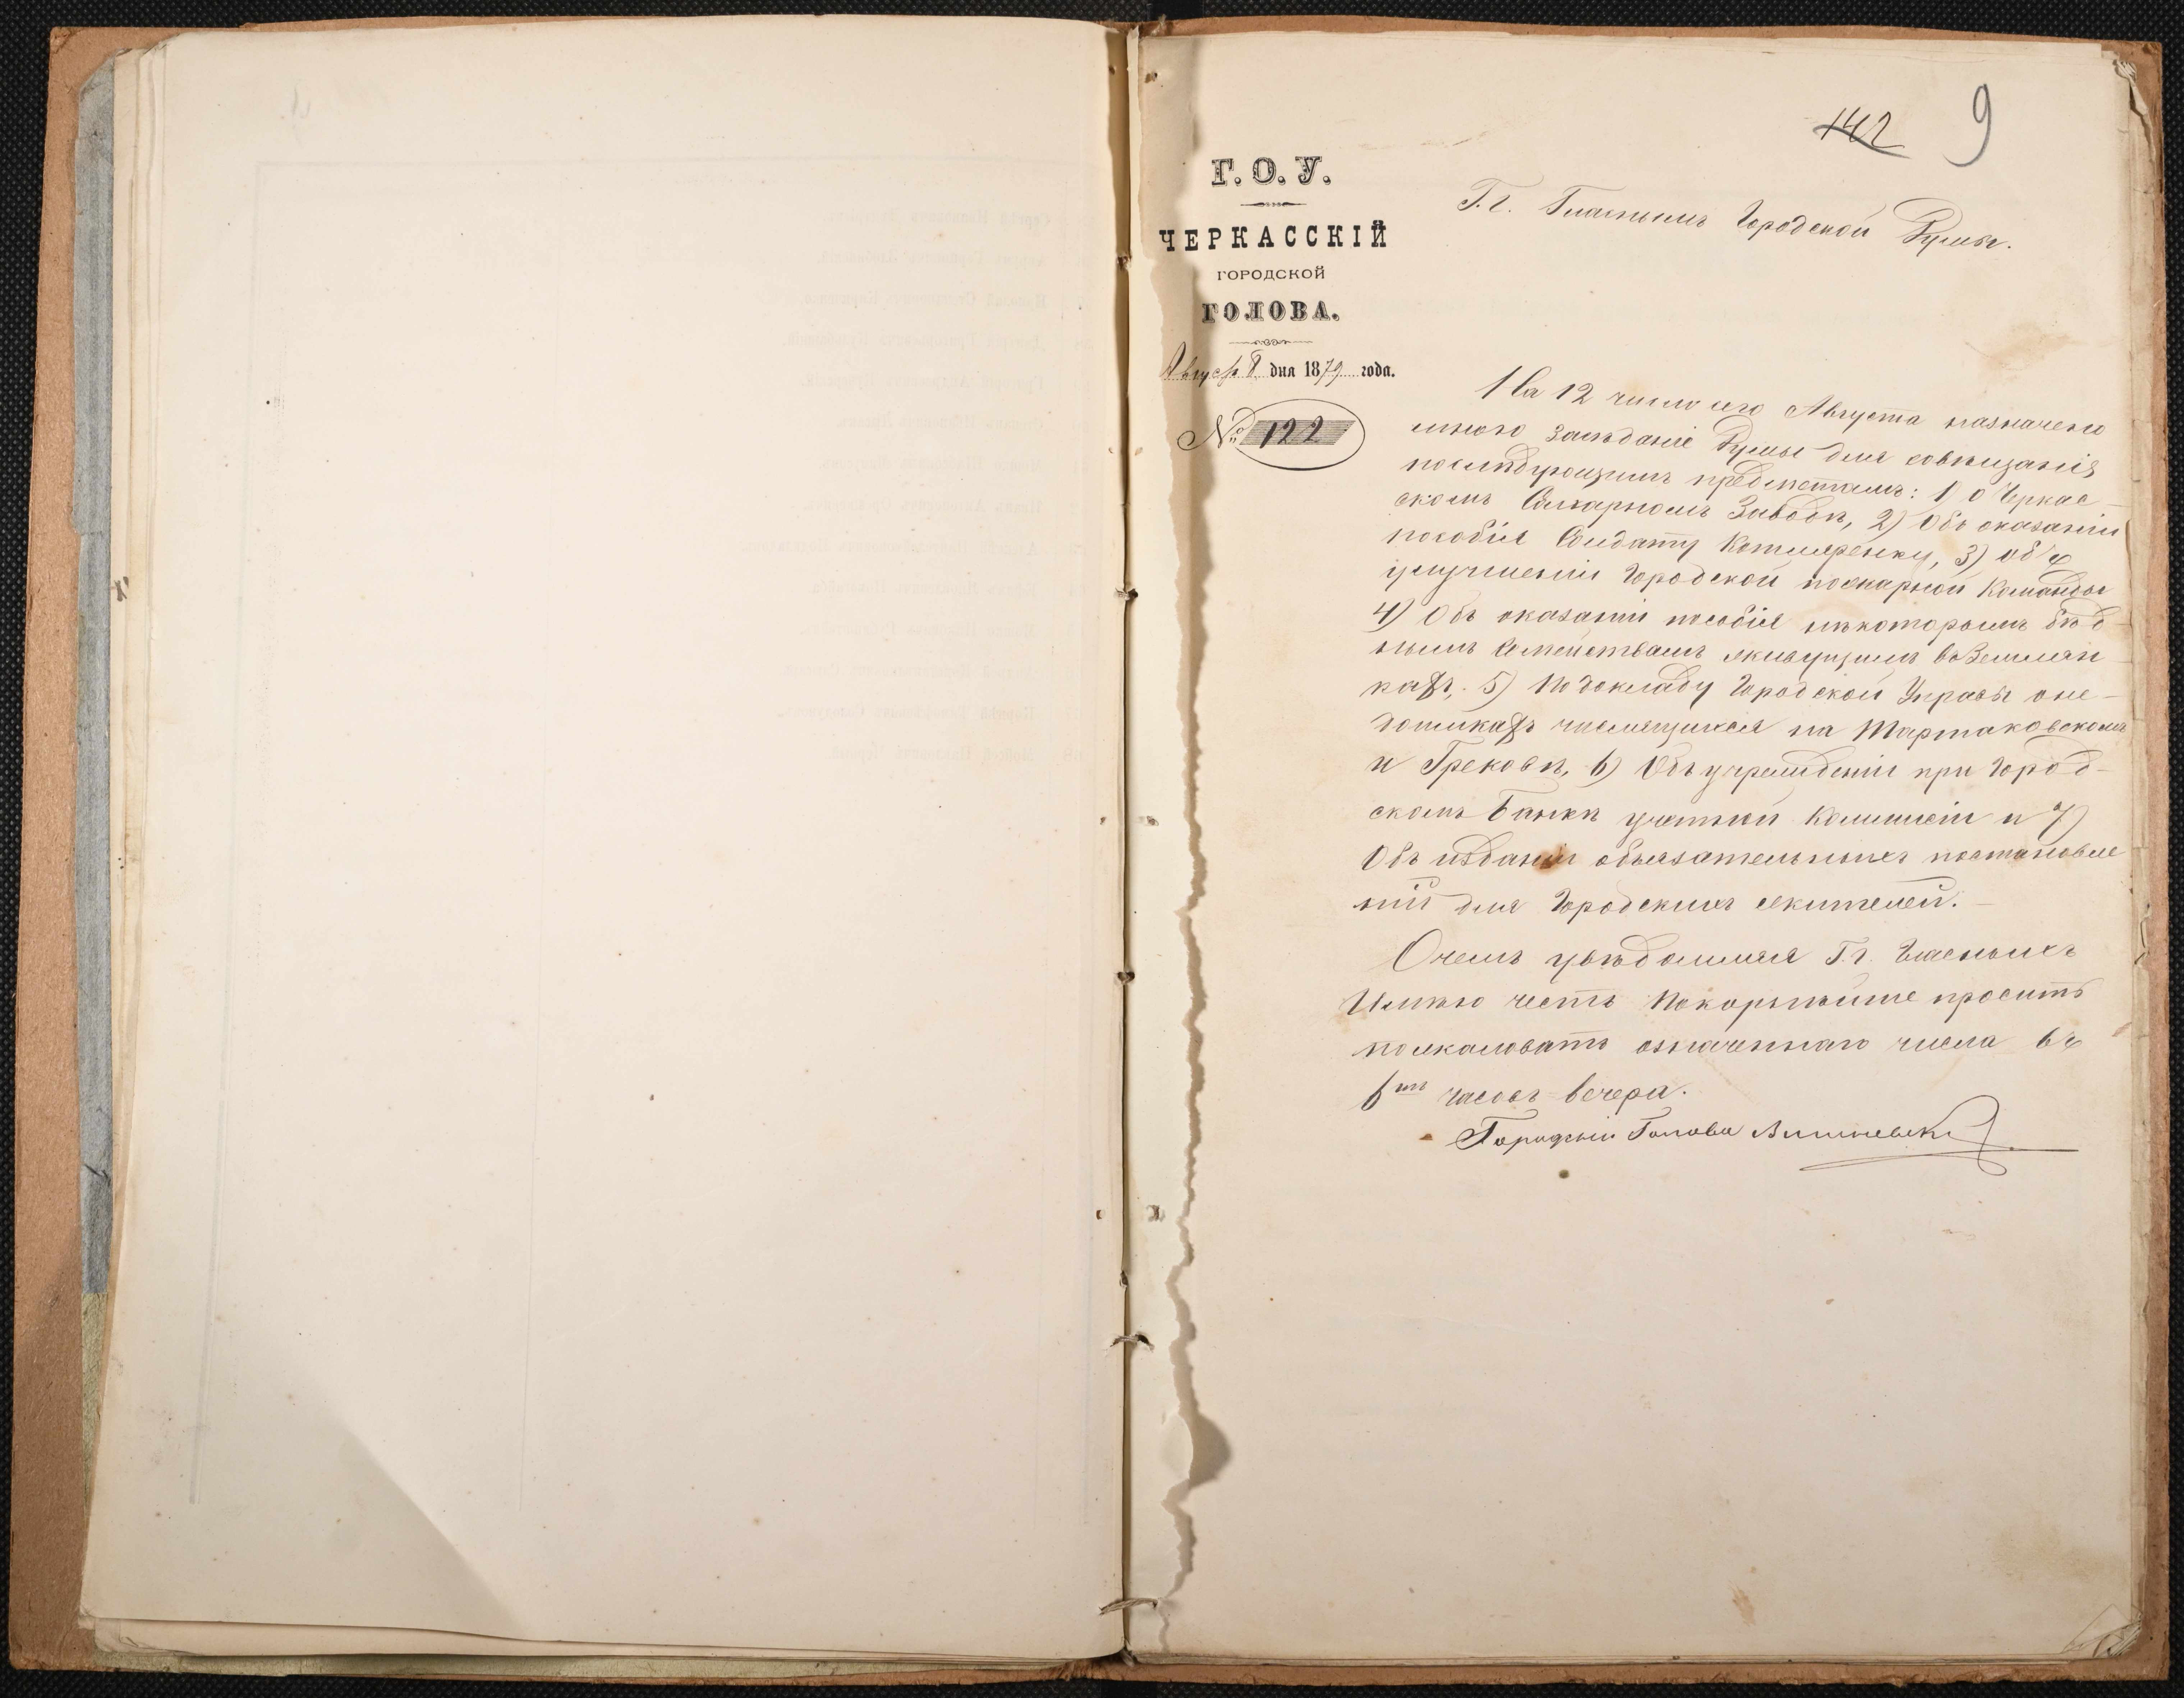 142 9
Г. О. У.
ЧЕРКАССКІЙ
ГОРОДСКОЙ
ГОЛОВА.
Август 8 дня 1879 года.
№ 122
Г.г. Гласнымъ Городской Думы.
На 12 число сего Августа назначено
мною засѣданіе Думы для совѣщанія
послѣдующимъ предметамъ: 1) о Черкас-
скомъ Сахарномъ Заводѣ, 2) Объ оказаніи
пособія Солдату Котляренку, 3) объ
улучшеніи Городской пожарной Команды
4) Объ оказаніи пособія нѣкоторымъ бѣд-
нымъ Семействамъ живущимъ въ Землян-
кахъ, 5) По докладу Городской Управы о не-
доимкахъ числящихся на Мартаковскомъ
и Грековѣ, 6) Объ учрежденіи при Город-
скомъ Банкѣ учетной Коммисіи и 7)
Объ изданіи обязательныхъ постановле
ній для Городскихъ жителей.
О чемъ увѣдомляя Г.г. Гласныхъ
Имѣю честь Покорнѣйше просить
пожаловать означеннаго числа въ
6ть часовъ вечера.
Городской Голова